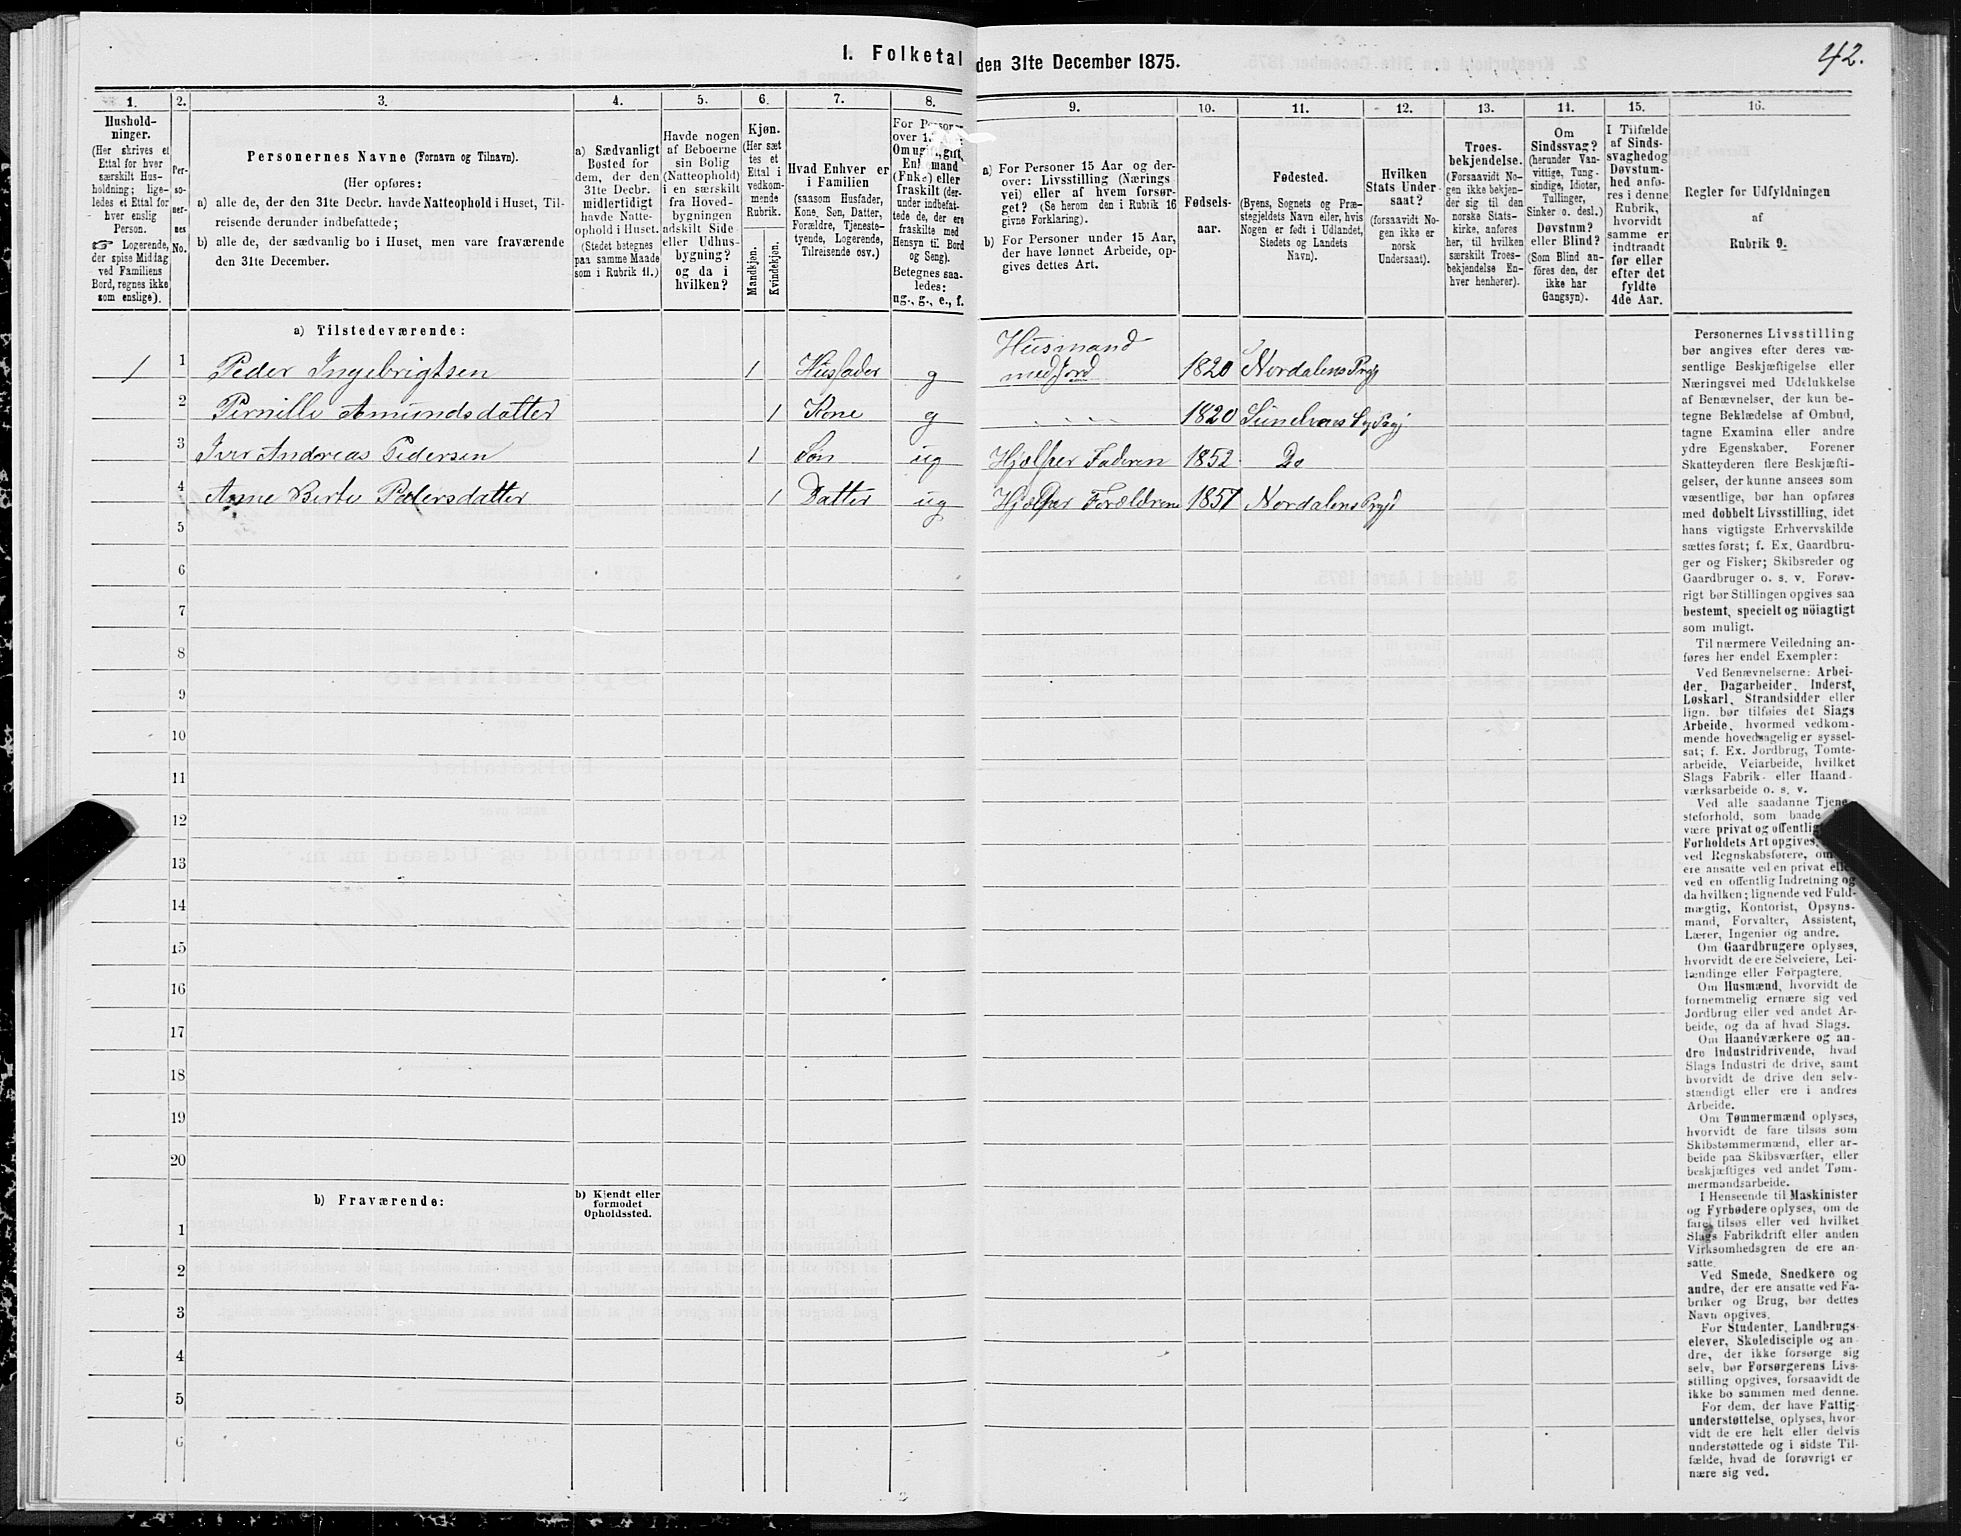 I. Folketal den 31te December 1875.
42.
1.
2.
3.
4.
5.
6.
7.
8.
9.
10.
11.
12.
13.
14.
15.
16.
Hushold-
ninger.
(Her skrives et
Ettal for hver
særskilt Hus-
holdning; lige-
ledes et Ettal for
hver enslig
Person.
☞ Logerende,
der spise Middag
ved Familiens
Bord, regnes ikke
som enslige).
Per-
so-
ner-
nes
No.
Personernes Navne (Fornavn og Tilnavn).
(Her opføres:
a) alle de, der den 31te Decbr. havde Natteophold i Huset, Til-
reisende derunder indbefattede;
b) alle de, der sædvanlig bo i Huset, men vare fraværende
den 31te December.
a) Sædvanligt
Bosted for
dem, der den
31te Decbr.
midlertidigt
havde Natte-
ophold i Huset.
(Stedet betegnes
paa samme Maade
som i Rubrik 11.)
Havde nogen
af Beboerne
sin Bolig
(Natteophold)
i en særskilt
fra Hoved-
bygningen
adskilt Side-
eller Udhus-
bygning?
og da i
hvilken?
Kjøn.
(Her sæt
tes et
Ettal i
vedkom-
mende
Rubrik.
Mandkjøn.
Kvindekjøn.
Hvad Enhver er
i Familien
(saasom Husfader,
Kone, Søn, Datter,
Forældre, Tjeneste-
tyende, Logerende,
Tilreisende osv.)
For Personer
over 1
Om ugift, gift,
Enkemand
(Enke) eller
fraskilt (der-
under indbefat-
tede de, der ere
fraskilte med
Hensyn til Bord
og Seng).
Betegnes saa-
ledes:
ug., g., e., f.
a) For Personer 15 Aar og der-
over: Livsstilling (Nærings
vei) eller af hvem forsør-
get? (Se herom den i Rubrik 16
givne Forklaring).
b) For Personer under 15 Aar,
der have lønnet Arbeide, op-
gives dettes Art.
Fødsels-
aar.
Fødested.
(Byens, Sognets og Præ-
stegjeldets Navn eller, hvis
Nogen er født i Udlandet,
Stedets og Landets
Navn).
Hvilken
Stats Under-
saat?
(forsaavidt No-
gen ikke er
norsk
Undersaat).
Troes-
bekjendelse.
(Forsaavidt No-
gen ikke bekjen-
der sig til den
norske Stats-
kirke, anføres
her, til hvilken
særskilt Troes-
bekjendelse En-
hver henhører).
Om
Sindssvag?
(herunder Van-
vittige, Tung-
sindige, Idioter,
Tullinger,
Sinker o. desl.)
Døvstum?
eller Blind?
(Som Blind an-
føres den, der
ikke har
Gangsyn).
I Tilfælde
af Sinds-
svaghedog
Døvstum-
hed anfø-
res i denne
Rubrik,
hvorvidt
samme er
indtraadt
før eller
efter det
fyldte
4de Aar.
Regler for Udfyldningen
af
Rubrik 9.
a) Tilstedeværende:
1 1 Peder Ingebrigtsen 1 Husfader g Husmand
med Jord 1820 Nordalens Prgj
2 Pernille Amundsdatter 1 Kone g 1820 Sunelvens Prgj
3 Iver Andreas Pedersen 1 Søn ug Hjelper Faderen 1852 Do
4 Anne Berte Pedersdatter 1 Datter ug Hjelper Forældrene 1857 Nordalens Prgjd
5
6
7
8
9
10
11
12
13
14
15
16
17
18
19
20
b) Fraværende:
b) Kjendt eller
formodet
Opholdssted.
1
2
3
4
5
6
Personernes Livsstilling
bør angives efter deres væ-
sentlige Beskjæftigelse eller
Næringsvei med Udelukkelse
af Benævnelser, der kun be-
tegne Beklædelse af Ombud,
tagne Examina eller andre
ydre Egenskaber. Forener
Skatteyderen flere Beskjæfti-
gelser, der kunne ansees som
væsentlige, bør han opføres
med dobbelt Livsstilling, idet
hans vigtigste Erhvervskilde
sættes først; f. Ex. Gaardbru-
ger og Fisker; Skibsreder og
Gaardbruger o. s. v. Forøv-
rigt bør Stillingen opgives saa
bestemt, specielt og nøiagtigt
som muligt.
Til nærmere Veiledning an-
føres her endel Exempler:
Ved Benævnelserne: Arbei-
der, Dagarbeider, Inderst,
Løskarl, Strandsidder eller
lign. bør tilføies det Slags
Arbeide, hvormed vedkom-
mende hovedsagelig er syssel-
sat; f. Ex. Jordbrug, Tomte-
arbeide, Veiarbeide, hvilket
Slags Fabrik- eller Haand-
værksarbeide o. s. v.
Ved alle saadanne Tjene-
steforhold, som baade
være privat og offentlig
Forholdets Art opgives,
ved Regnskabsførere, om
ere ansatte ved en privat eller
ved en offentlig Indretning og
da hvilken; lignende ved Fuld-
mægtig, Kontorist, Opsyns-
mand, Forvalter, Assistent,
Lærer, Ingeniør og andre.
Om Gaardbrugere oplyses,
hvorvidt de ere Selveiere, Lei-
lændinge eller Forpagtere.
Om Husmænd, hvorvidt de
fornemmelig ernære sig ved
Jordbrug eller ved andet Ar-
beide, og da af hvad Slags.
Om Haandværkere og an-
dre Industridrivende, hvad
Slags Industri de drive, samt
hvorvidt de drive den selv-
stændigt eller ere i andres
Arbeide.
Om Tømmermænd oplyses,
hvorvidt de fare tilsøs som
Skibstømmermænd, eller ar-
beide paa Skibsværfter, eller
beskjæftiges ved andet Tøm-
mermandsarbeide.
I Henseende til Maskinister
og Fyrbødere oplyses, om de
fare tilsøs eller ved hvilket
Slags Fabrikdrift eller anden
Virksomhedsgren de ere an-
satte.
Ved Smede, Snedkere og
andre, der ere ansatte ved Fa-
briker og Brug, bør dettes
Navn opgives.
For Studenter, Landbrugs-
elever, Skoledisciple og an-
dre, der ikke forsørge sig
selv, bør Forsørgerens Livs-
stilling opgives, forsaavidt de
ikke bo sammen med denne.
For dem, der have Fattig-
understøttelse, oplyses, hvor-
vidt de ere helt eller delvis
understøttede og i sidste Til-
fælde, hvad de forøvrigt er
nære sig ved.